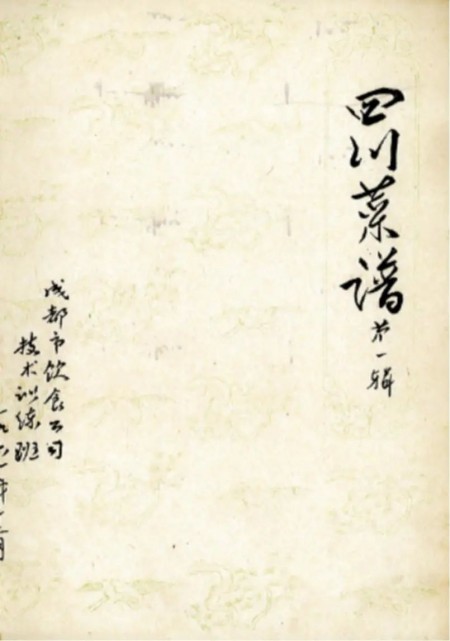 四川菜谱
第一辑
成都市饮食公司
技术训练班